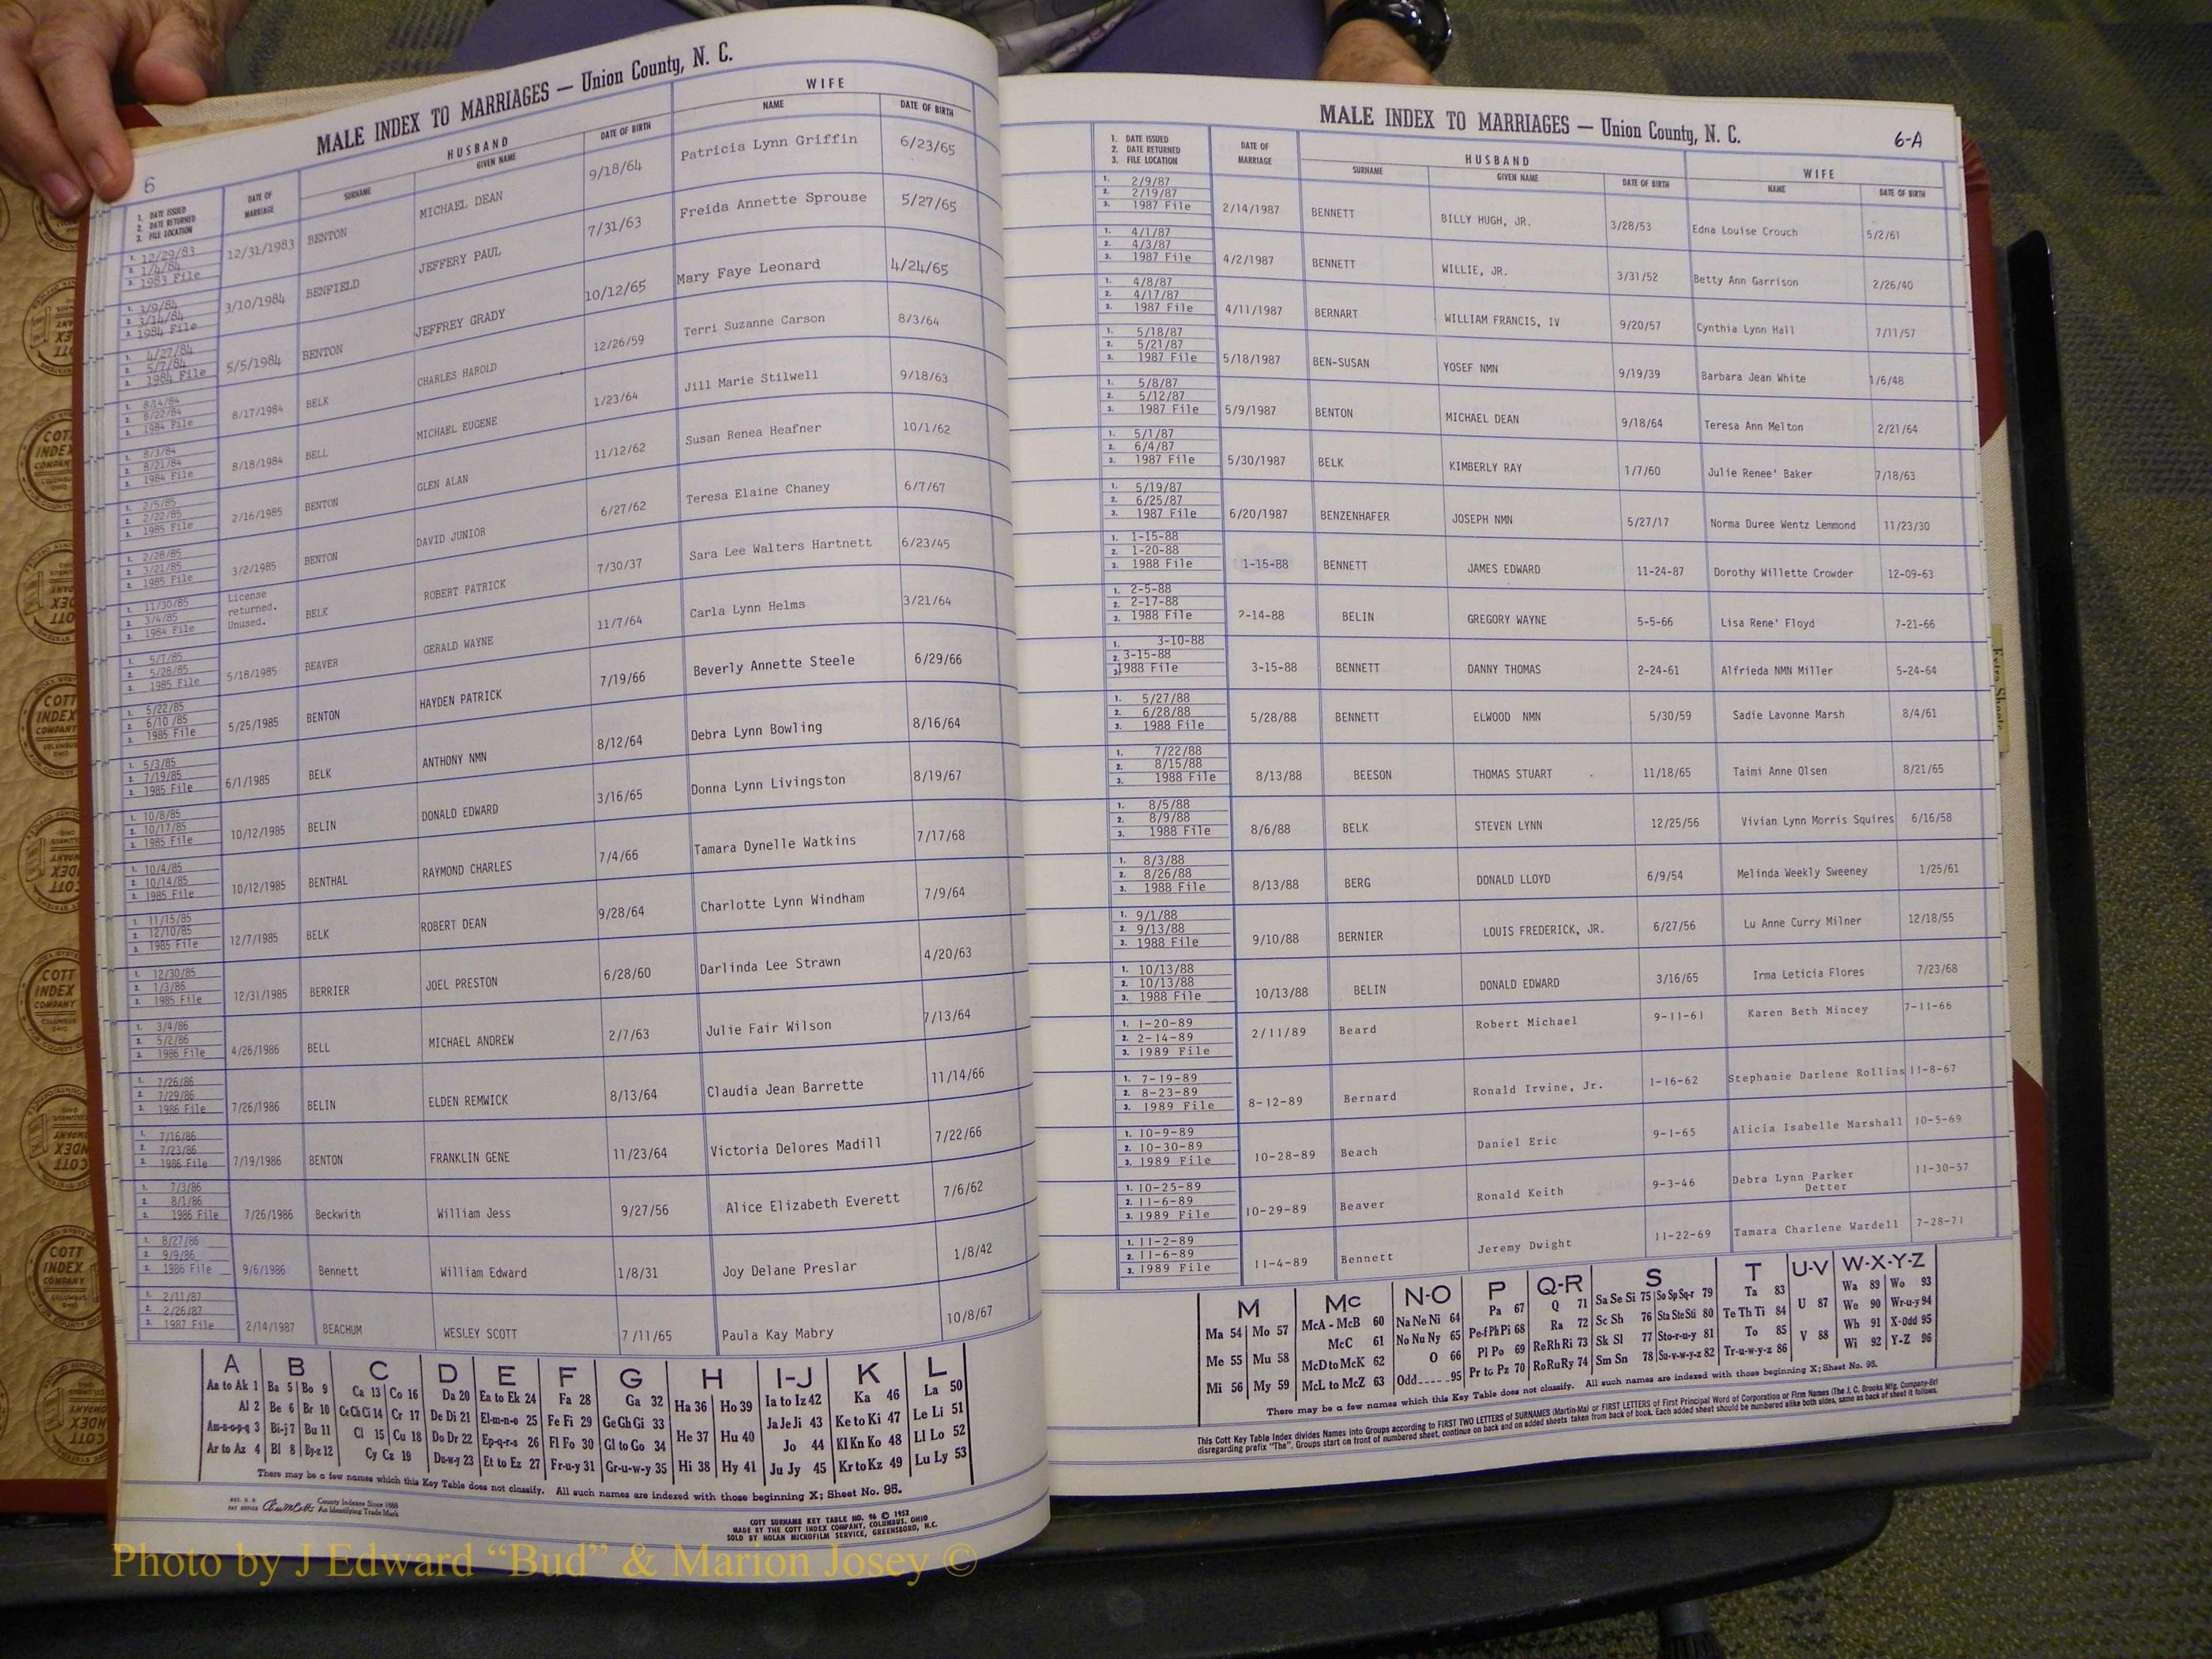 6
MALE INDEX TO MARRIAGES — Union County, N. C.
1. DATE ISSUED 2. DATE RETURNED 3. FILE LOCATION DATE OF MARRIAGE HUSBAND SURNAME GIVEN NAME DATE OF BIRTH WIFE NAME DATE OF BIRTH
1. 12/29/83 2. 1/4/84 3. 1983 File 12/31/1983 BENTON MICHAEL DEAN 9/18/64 Patricia Lynn Griffin 6/23/65
1. 3/9/84 2. 3/14/84 3. 1984 File 3/10/1984 BENFIELD JEFFERY PAUL 7/31/63 Freida Annette Sprouse 5/27/65
1. 4/27/84 2. 5/7/84 3. 1984 File 5/5/1984 BENTON JEFFREY GRADY 10/12/65 Mary Faye Leonard 4/24/65
1. 8/14/84 2. 8/22/84 3. 1984 File 8/17/1984 BELK CHARLES HAROLD 12/26/59 Terri Suzanne Carson 8/3/64
1. 8/3/84 2. 8/21/84 3. 1984 File 8/18/1984 BELL MICHAEL EUGENE 1/23/64 Jill Marie Stilwell 9/18/63
1. 2/5/85 2. 2/22/85 3. 1985 File 2/16/1985 BENTON GLEN ALAN 11/12/62 Susan Renea Heafner 10/1/62
1. 2/28/85 2. 3/21/85 3. 1985 File 3/2/1985 BENTON DAVID JUNIOR 6/27/62 Teresa Elaine Chaney 6/7/67
1. 11/30/85 2. 3/4/85 3. 1984 File License returned. Unused. BELK ROBERT PATRICK 7/30/37 Sara Lee Walters Hartnett 6/23/45
1. 5/7/85 2. 5/28/85 3. 1985 File 5/18/1985 BEAVER GERALD WAYNE 11/7/64 Carla Lynn Helms 3/21/64
1. 5/22/85 2. 6/10/85 3. 1985 File 5/25/1985 BENTON HAYDEN PATRICK 7/19/66 Beverly Annette Steele 6/29/66
1. 5/3/85 2. 7/19/85 3. 1985 File 6/1/1985 BELK ANTHONY NMN 8/12/64 Debra Lynn Bowling 8/16/64
1. 10/8/85 2. 10/17/85 3. 1985 File 10/12/1985 BELIN DONALD EDWARD 3/16/65 Donna Lynn Livingston 8/19/67
1. 10/4/85 2. 10/14/85 3. 1985 File 10/12/1985 BENTHAL RAYMOND CHARLES 7/4/66 Tamara Dynelle Watkins 7/17/68
1. 11/15/85 2. 12/10/85 3. 1985 File 12/7/1985 BELK ROBERT DEAN 9/28/64 Charlotte Lynn Windham 7/9/64
1. 12/30/85 2. 1/3/86 3. 1985 File 12/31/1985 BERRIER JOEL PRESTON 6/28/60 Darlinda Lee Strawn 4/20/63
1. 3/4/86 2. 5/2/86 3. 1986 File 4/26/1986 BELL MICHAEL ANDREW 2/7/63 Julie Fair Wilson 7/13/64
1. 7/26/86 2. 7/29/86 3. 1986 File 7/26/1986 BELIN ELDEN REMWICK 8/13/64 Claudia Jean Barrette 11/14/66
1. 7/16/86 2. 7/23/86 3. 1986 File 7/19/1986 BENTON FRANKLIN GENE 11/23/64 Victoria Delores Madill 7/22/66
1. 7/3/86 2. 8/1/86 3. 1986 File 7/26/1986 Beckwith William Jess 9/27/56 Alice Elizabeth Everett 7/6/62
1. 8/27/86 2. 9/9/86 3. 1986 File 9/6/1986 Bennett William Edward 1/8/31 Joy Delane Preslar 1/8/42
1. 2/11/87 2. 2/26/87 3. 1987 File 2/14/1987 BEACHUM WESLEY SCOTT 7/11/65 Paula Kay Mabry 10/8/67
A B C D E F G H I-J K L
Aa to Ak 1 Ba 5 Bo 9 Ca 13 Co 16 Da 20 Ea to Ek 24 Fa 28 Ga 32 Ha 36 Ho 39 Ia to Iz 42 Ka 46 La 50
Al 2 Be 6 Br 10 Ce Ch Ci 14 Cr 17 De Di 21 El-m-n-o 25 Fe Fi 29 Ge Gh Gi 33 He 37 Hu 40 Ja Je Ji 43 Ke to Ki 47 Le Li 51
Am-n-o-p-q 3 Bi-j 7 Bu 11 Cl 15 Cu 18 Do Dr 22 Ep-q-r-s 26 Fl Fo 30 Gl to Go 34 Jo 44 Kl Kn Ko 48 Ll Lo 52
Ar to Az 4 Bl 8 By-z 12 Cy Cz 19 Du-w-y 23 Et to Ez 27 Fr-u-y 31 Gr-u-w-y 35 Hi 38 Hy 41 Ju Jy 45 Kr to Kz 49 Lu Ly 53
There may be a few names which this Key Table does not classify. All such names are indexed with those beginning X; Sheet No. 95.
County Indexes Since 1888
An Identifying Trade Mark
COTT SURNAME KEY TABLE NO. 96 © 1952
MADE BY THE COTT INDEX COMPANY, COLUMBUS, OHIO
SOLD BY NOLAN MICROFILM SERVICE, GREENSBORO, N.C.
MALE INDEX TO MARRIAGES — Union County, N. C.
6-A
1. DATE ISSUED 2. DATE RETURNED 3. FILE LOCATION DATE OF MARRIAGE HUSBAND SURNAME GIVEN NAME DATE OF BIRTH WIFE NAME DATE OF BIRTH
1. 2/9/87 2. 2/19/87 3. 1987 File 2/14/1987 BENNETT BILLY HUGH, JR. 3/28/53 Edna Louise Crouch 5/2/61
1. 4/1/87 2. 4/3/87 3. 1987 File 4/2/1987 BENNETT WILLIE, JR. 3/31/52 Betty Ann Garrison 2/26/40
1. 4/8/87 2. 4/17/87 3. 1987 File 4/11/1987 BERNART WILLIAM FRANCIS, IV 9/20/57 Cynthia Lynn Hall 7/11/57
1. 5/18/87 2. 5/21/87 3. 1987 File 5/18/1987 BEN-SUSAN YOSEF NMN 9/19/39 Barbara Jean White 1/6/48
1. 5/8/87 2. 5/12/87 3. 1987 File 5/9/1987 BENTON MICHAEL DEAN 9/18/64 Teresa Ann Melton 2/21/64
1. 5/1/87 2. 6/4/87 3. 1987 File 5/30/1987 BELK KIMBERLY RAY 1/7/60 Julie Renee' Baker 7/18/63
1. 5/19/87 2. 6/25/87 3. 1987 File 6/20/1987 BENZENHAFER JOSEPH NMN 5/27/17 Norma Duree Wentz Lemmond 11/23/30
1. 1-15-88 2. 1-20-88 3. 1988 File 1-15-88 BENNETT JAMES EDWARD 11-24-87 Dorothy Willette Crowder 12-09-63
1. 2-5-88 2. 2-17-88 3. 1988 File 2-14-88 BELIN GREGORY WAYNE 5-5-66 Lisa Rene' Floyd 7-21-66
1. 3-10-88 2. 3-15-88 3. 1988 File 3-15-88 BENNETT DANNY THOMAS 2-24-61 Alfrieda NMN Miller 5-24-64
1. 5/27/88 2. 6/28/88 3. 1988 File 5/28/88 BENNETT ELWOOD NMN 5/30/59 Sadie Lavonne Marsh 8/4/61
1. 7/22/88 2. 8/15/88 3. 1988 File 8/13/88 BEESON THOMAS STUART 11/18/65 Taimi Anne Olsen 8/21/65
1. 8/5/88 2. 8/9/88 3. 1988 File 8/6/88 BELK STEVEN LYNN 12/25/56 Vivian Lynn Morris Squires 6/16/58
1. 8/3/88 2. 8/26/88 3. 1988 File 8/13/88 BERG DONALD LLOYD 6/9/54 Melinda Weekly Sweeney 1/25/61
1. 9/1/88 2. 9/13/88 3. 1988 File 9/10/88 BERNIER LOUIS FREDERICK, JR. 6/27/56 Lu Anne Curry Milner 12/18/55
1. 10/13/88 2. 10/13/88 3. 1988 File 10/13/88 BELIN DONALD EDWARD 3/16/65 Irma Leticia Flores 7/23/68
1. 1-20-89 2. 2-14-89 3. 1989 File 2/11/89 Beard Robert Michael 9-11-61 Karen Beth Mincey 7-11-66
1. 7-19-89 2. 8-23-89 3. 1989 File 8-12-89 Bernard Ronald Irvine, Jr. 1-16-62 Stephanie Darlene Rollins 11-8-67
1. 10-9-89 2. 10-30-89 3. 1989 File 10-28-89 Beach Daniel Eric 9-1-65 Alicia Isabelle Marshall 10-5-69
1. 10-25-89 2. 11-6-89 3. 1989 File 10-29-89 Beaver Ronald Keith 9-3-46 Debra Lynn Parker Detter 11-30-57
1. 11-2-89 2. 11-6-89 3. 1989 File 11-4-89 Bennett Jeremy Dwight 11-22-69 Tamara Charlene Wardell 7-28-71
M Mc N-O P Q-R S T U-V W-X-Y-Z
Ma 54 Mo 57 McA - McB 60 Na Ne Ni 64 Pa 67 Q 71 Sa Se Si 75 So Sp Sq-r 79 Ta 83 U 87 Wa 89 Wo 93
Me 55 Mu 58 McC 61 No Nu Ny 65 Pe-f Ph Pi 68 Ra 72 Sc Sh 76 Sta Ste Sti 80 Te Th Ti 84 V 88 We 90 Wr-u-y 94
McD to McK 62 O 66 Pl Po 69 Re Rh Ri 73 Sk Sl 77 Sto-r-u-y 81 To 85 Wh 91 X-Odd 95
Mi 56 My 59 McL to McZ 63 Odd 95 Pr to Pz 70 Ro Ru Ry 74 Sm Sn 78 Su-v-w-y-z 82 Tr-u-w-y-z 86 Wi 92 Y-Z 96
There may be a few names which this Key Table does not classify. All such names are indexed with those beginning X; Sheet No. 95.
This Cott Key Table Index divides Names into Groups according to FIRST TWO LETTERS of SURNAMES (Martin-Ma) or FIRST LETTERS of First Principal Word of Corporation or Firm Names (The J. C. Brooks Mfg. Company-Br)
disregarding prefix "The". Groups start on front of numbered sheet, continue on back and on added sheets taken from back of book. Each added sheet should be numbered alike both sides, same as back of sheet it follows.
Extra Sheets
COTT INDEX COMPANY
Photo by J Edward “Bud” & Marion Josey ©